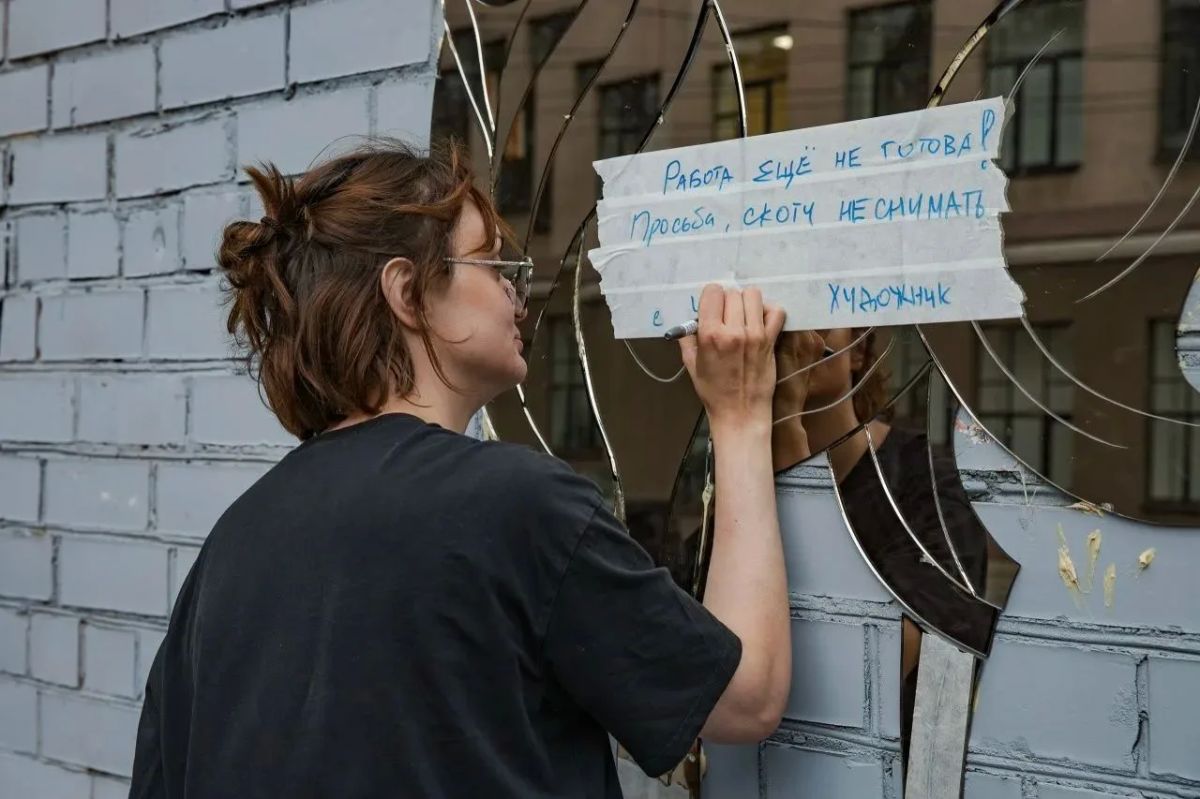 Работа ещё не готова!
Просьба, скотч не снимать
с у
художник